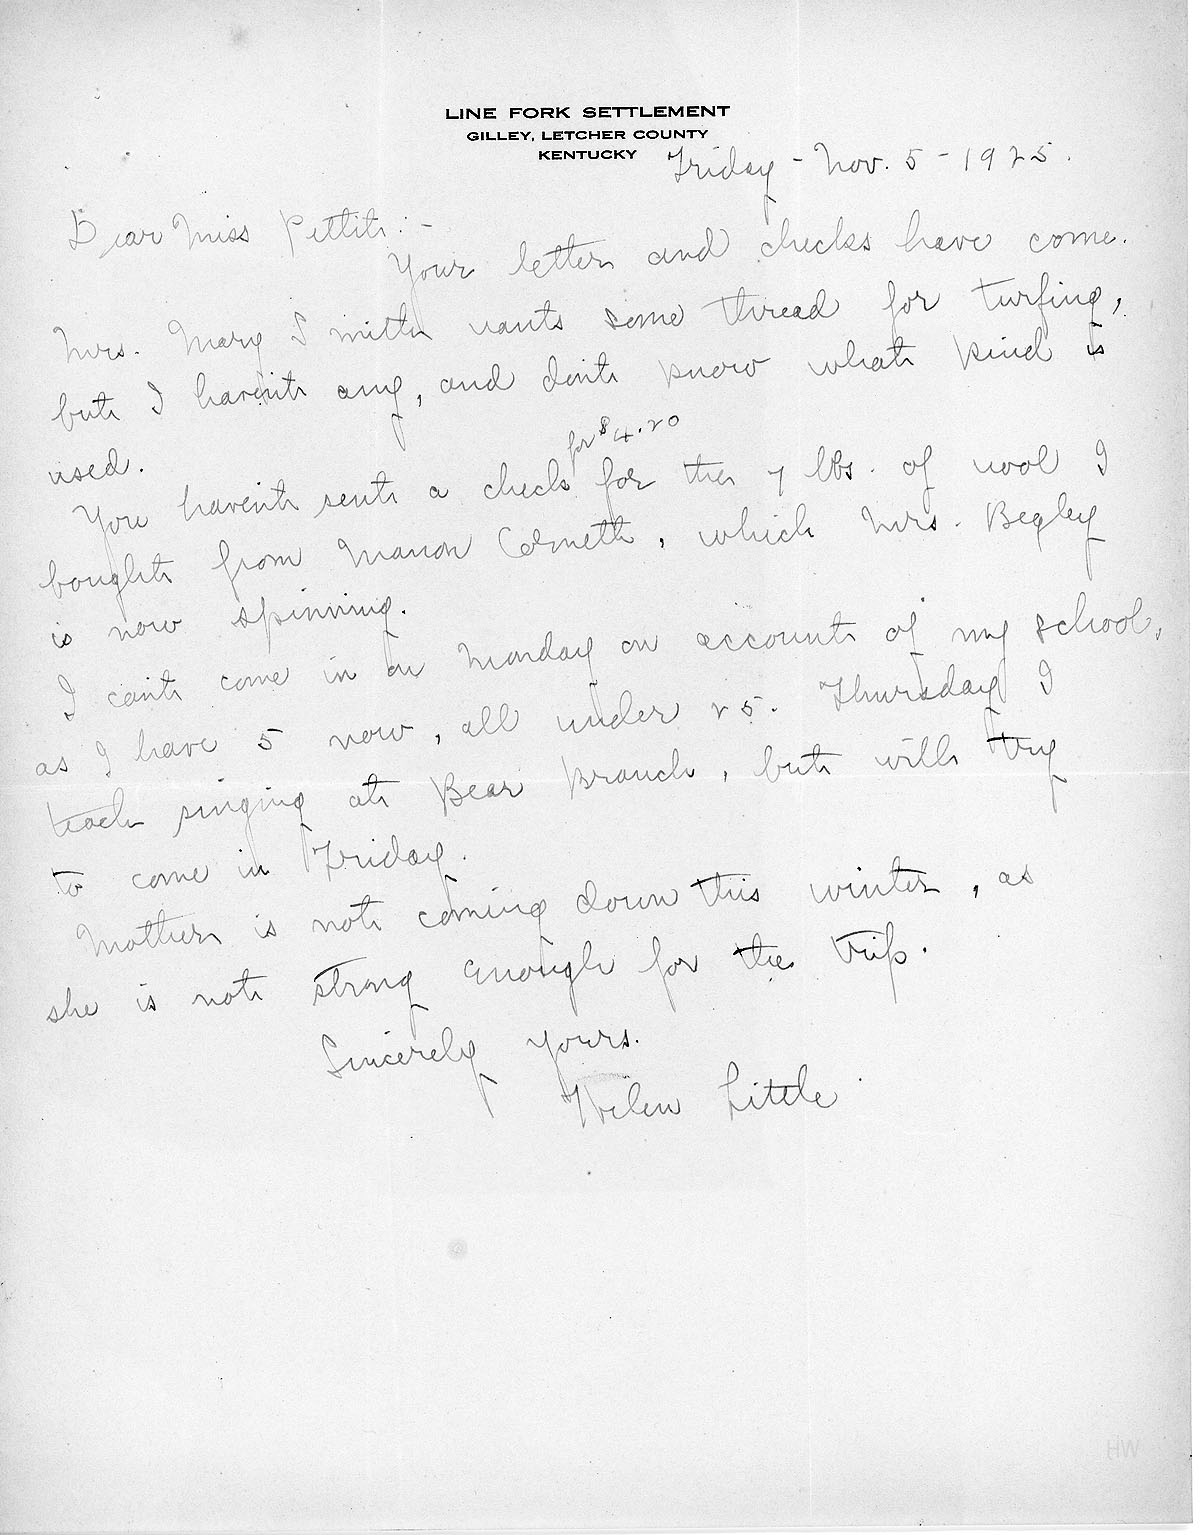 LINE FORK SETTLEMENT
GILLEY, LETCHER COUNTY
KENTUCKY
Friday - Nov. 5 - 1925.
Dear Miss Pettit: -
Your letter and checks have come.
Mrs. Mary Smith wants some thread for turfing,
but I haven't any, and don't know what kind is
used.
for $4.20
You haven't sent a check for the 7 lbs. of wool I
bought from Manon Cornett, which Mrs. Begley
is now spinning.
I can't come in on Monday on account of my school,
as I have 5 now, all under 25. Thursday I
teach singing at Bear Branch, but will try
to come in Friday.
Mother is not coming down this winter, as
she is not strong enough for the trip.
Sincerely yours.
Helen Little
HW